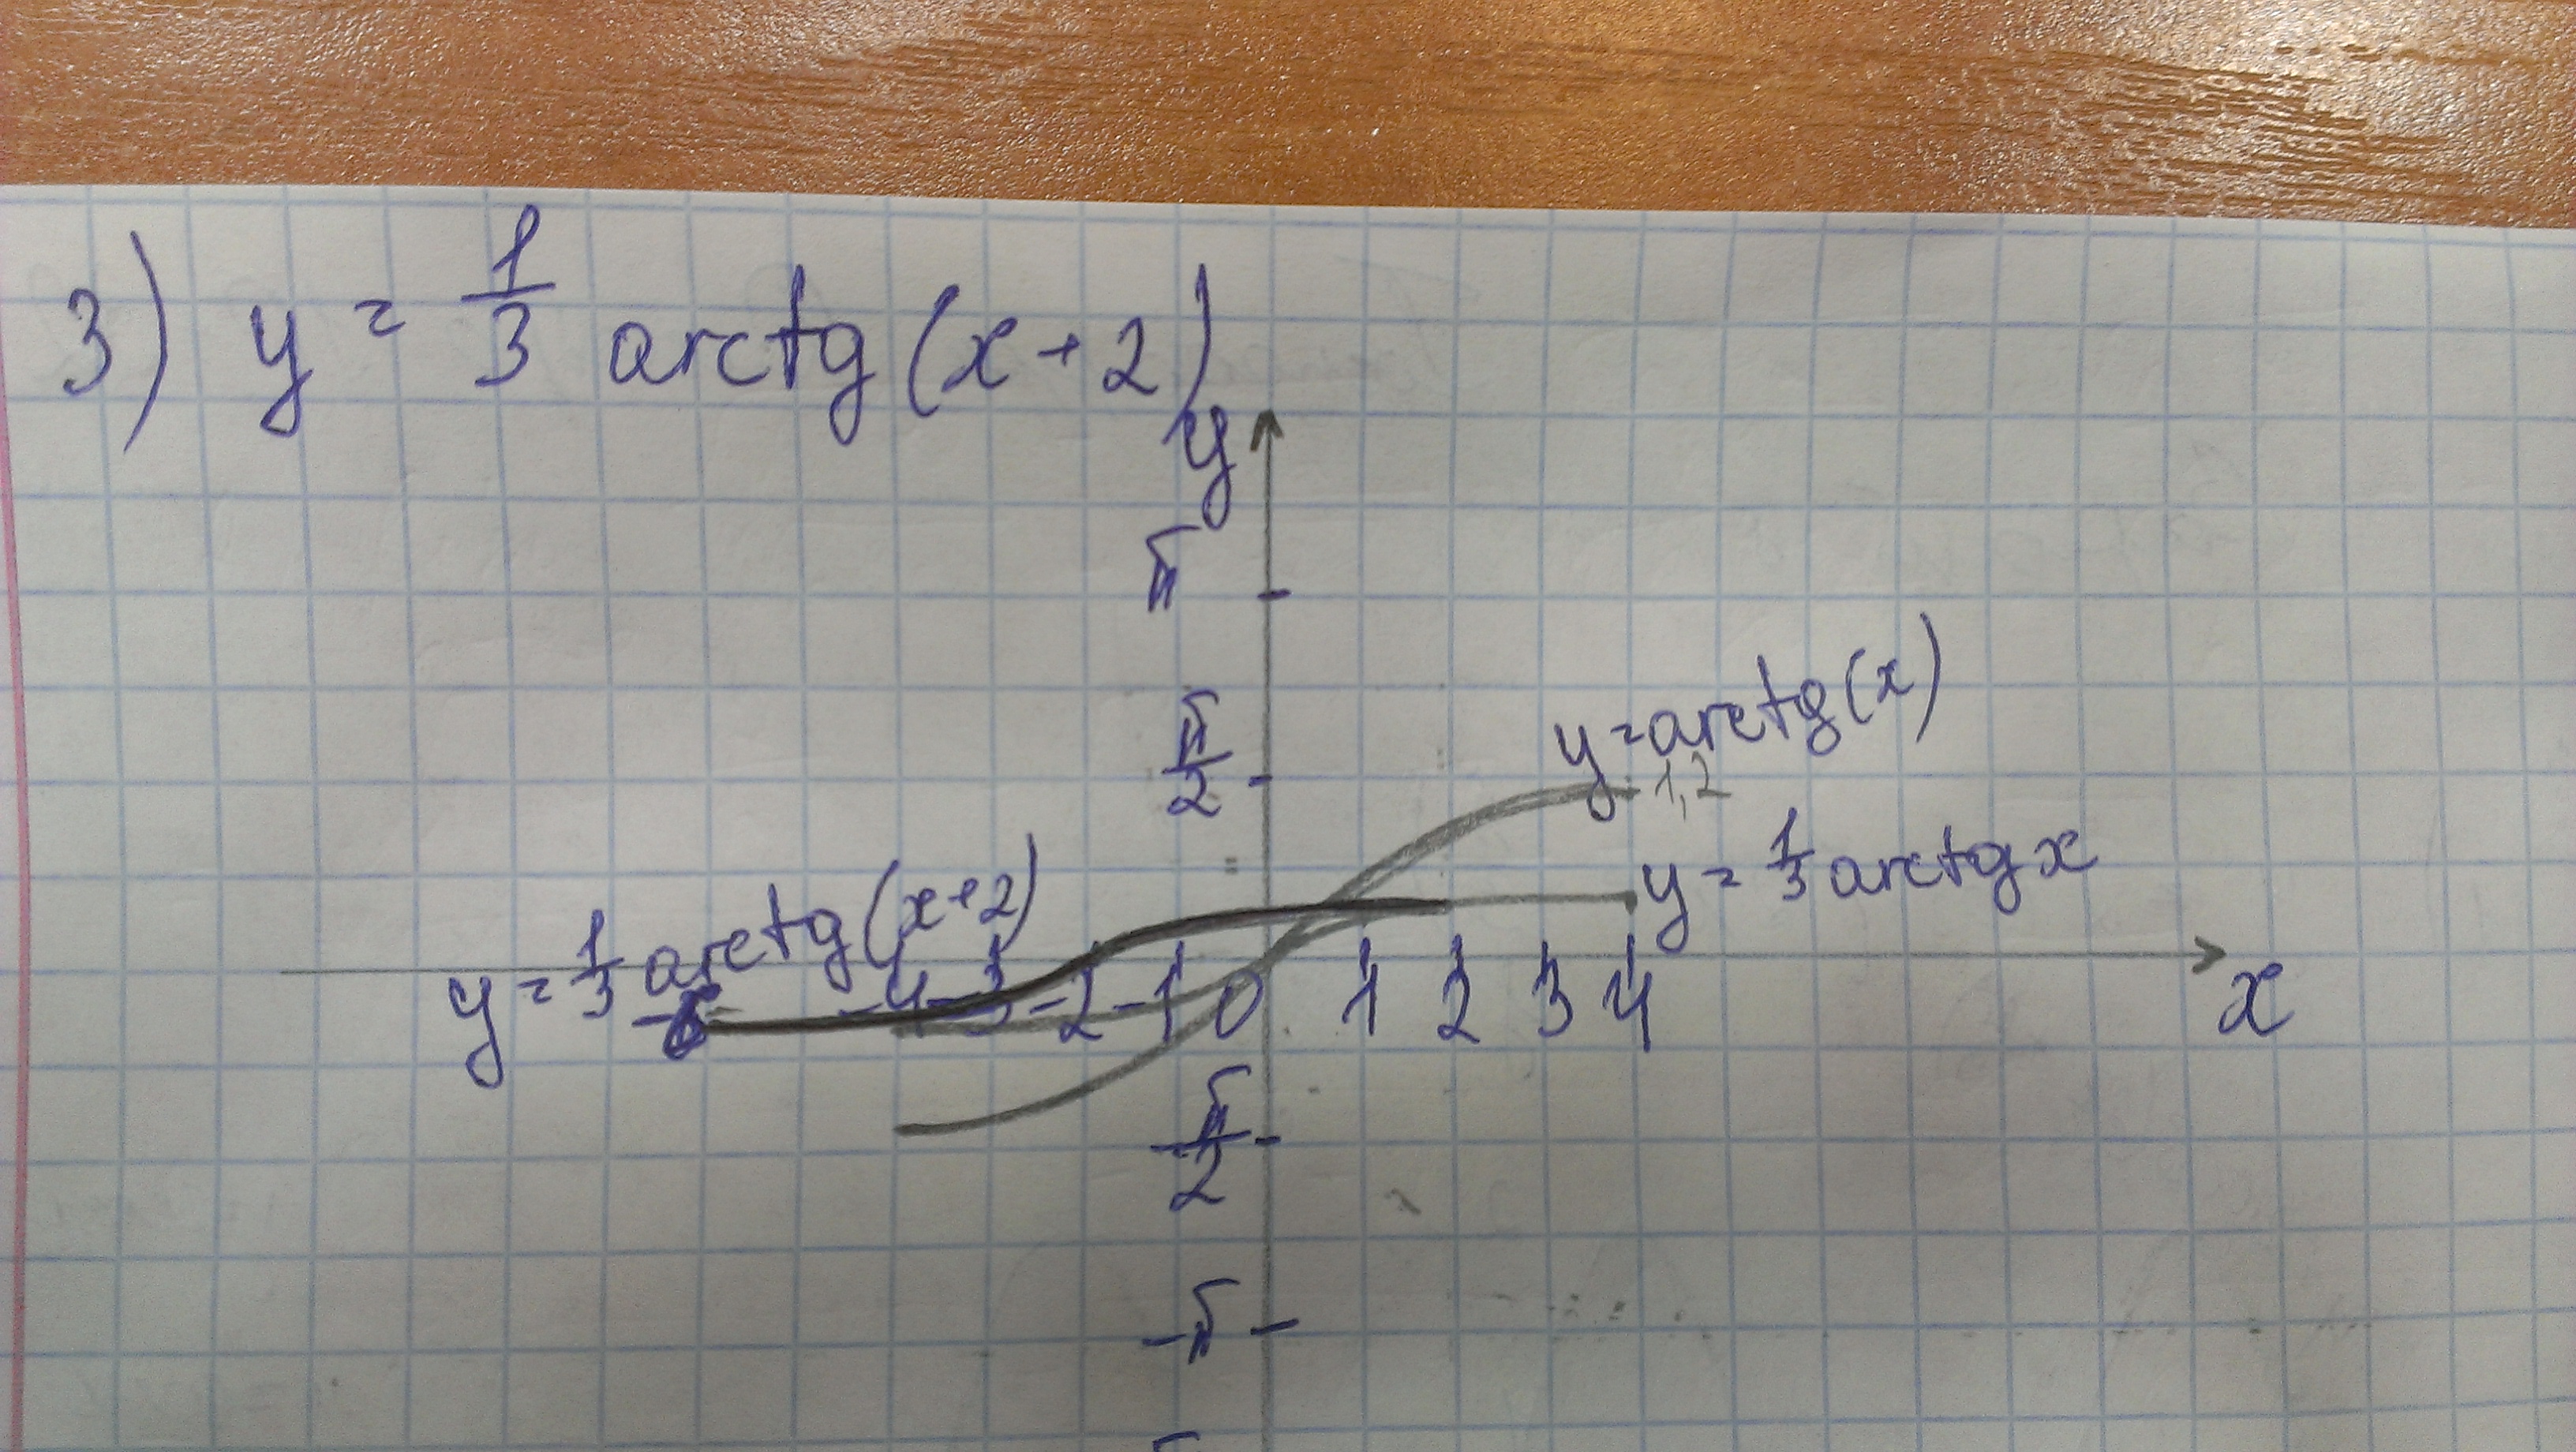 3) y = 1/3 arctg(x+2)
y
π
π/2
y=arctg(x)
1,2
y = 1/3 arctg x
y = 1/3 arctg(x+2)
-6 -4 -3 -2 -1 0 1 2 3 4 x
-π/2
-π